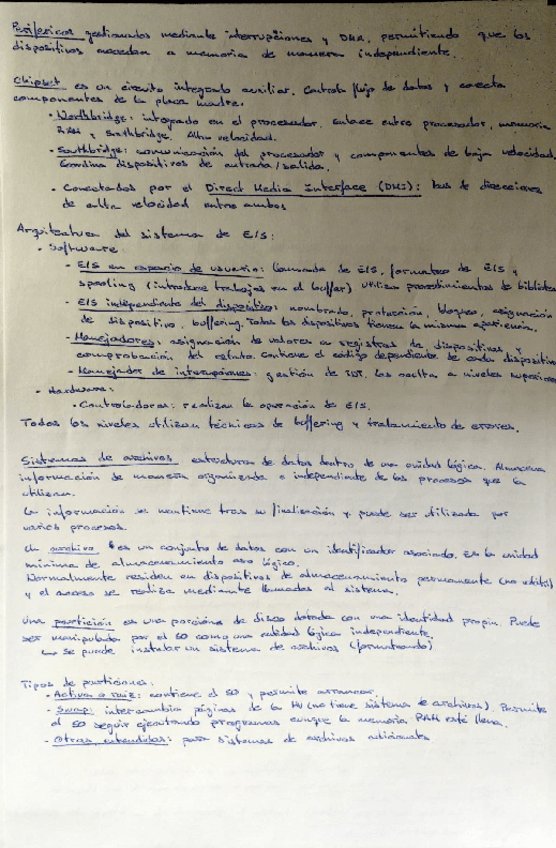 Periféricos gestionados mediante interrupciones y DMA, permitiendo que los
dispositivos accedan a memoria de manera independiente.
Chipset es un circuito integrado auxiliar. Controla flujo de datos y conecta
componentes de la placa madre.
• Northbridge: integrado en el procesador. Enlace entre procesador, memoria
RAM y Southbridge. Alta velocidad.
• Southbridge: comunicación del procesador y componentes de baja velocidad.
Coordina dispositivos de entrada/salida.
• Conectados por el Direct Media Interface (DMI): bus de direcciones
de alta velocidad entre ambos
Arquitectura del sistema de E/S:
• Software:
- E/S en espacio de usuario: llamada de E/S, formateo de E/S y
spooling (introduce trabajos en el buffer) utiliza procedimientos de biblioteca
- E/S independiente del dispositivo: nombrado, protección, bloqueo, asignación
de dispositivo, buffering. Todos los dispositivos tienen la misma apariencia.
- Manejadores: asignación de valores a registros de dispositivos y
comprobación del estado. Contiene el código dependiente de cada dispositivo
- Manejador de interrupciones: gestión de IDT. Las oculta a niveles superiores
• Hardware:
• Controladoras: realizan la operación de E/S.
Todos los niveles utilizan técnicas de buffering y tratamiento de errores.
Sistemas de archivos estructura de datos dentro de una unidad lógica. Almacena
información de manera organizada e independiente de los procesos que la
utilizan.
La información se mantiene tras su finalización y puede ser utilizada por
varios procesos.
Un archivo es un conjunto de datos con un identificador asociado. Es la unidad
mínima de almacenamiento lógico.
Normalmente residen en dispositivos de almacenamiento permanente (no volátil)
y el acceso se realiza mediante llamadas al sistema.
Una partición es una porción de disco dotada con una identidad propia. Puede
ser manipulada por el SO como una entidad lógica independiente.
se puede instalar un sistema de archivos (formateando)
Tipos de particiones:
- Activa o raíz: contiene el SO y permite arrancar.
- Swap: intercambia páginas de la MV (no tiene sistema de archivos). Permite
al SO seguir ejecutando programas aunque la memoria RAM esté llena.
- Otras extendidas: para sistemas de archivos adicionales